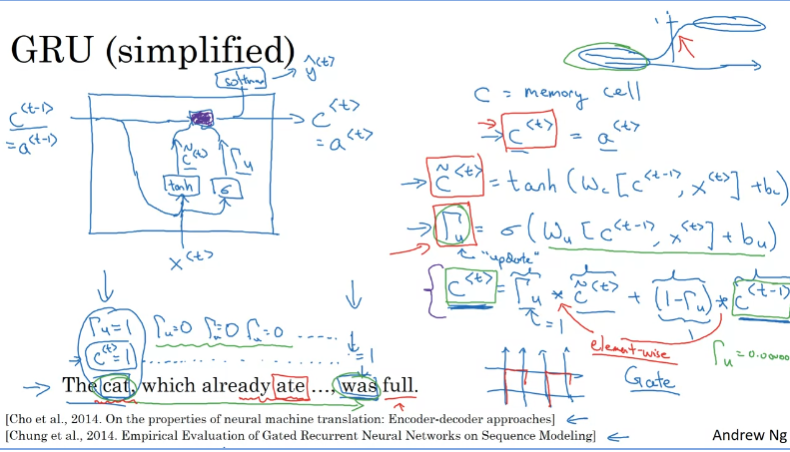 GRU (simplified)
softmax
ŷ<t>
c<t-1>
=a<t-1>
c<t>
=a<t>
c̃<t>
Γu
tanh
σ
x<t>
1
C = memory cell
c<t> = a<t>
c̃<t> = tanh (Wc [c<t-1>, x<t>] + bc)
Γu = σ (Wu [c<t-1>, x<t>] + bu)
"update"
c<t> = Γu * c̃<t> + (1-Γu) * c<t-1>
=1
element-wise
Gate
Γu = 0.00000
Γu=1 Γu=0 Γu=0 Γu=0 ......
c<t>=1 .......... =1
The cat, which already ate ..., was full.
[Cho et al., 2014. On the properties of neural machine translation: Encoder-decoder approaches]
[Chung et al., 2014. Empirical Evaluation of Gated Recurrent Neural Networks on Sequence Modeling]
Andrew Ng